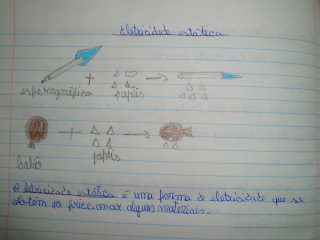 Eletricidade estática
esferográfica + papéis
Balão + papéis
A eletricidade estática é uma forma de eletricidade que se
obtém ao friccionar alguns materiais.